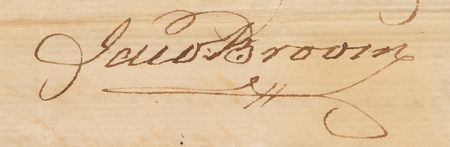 Jaco Broom